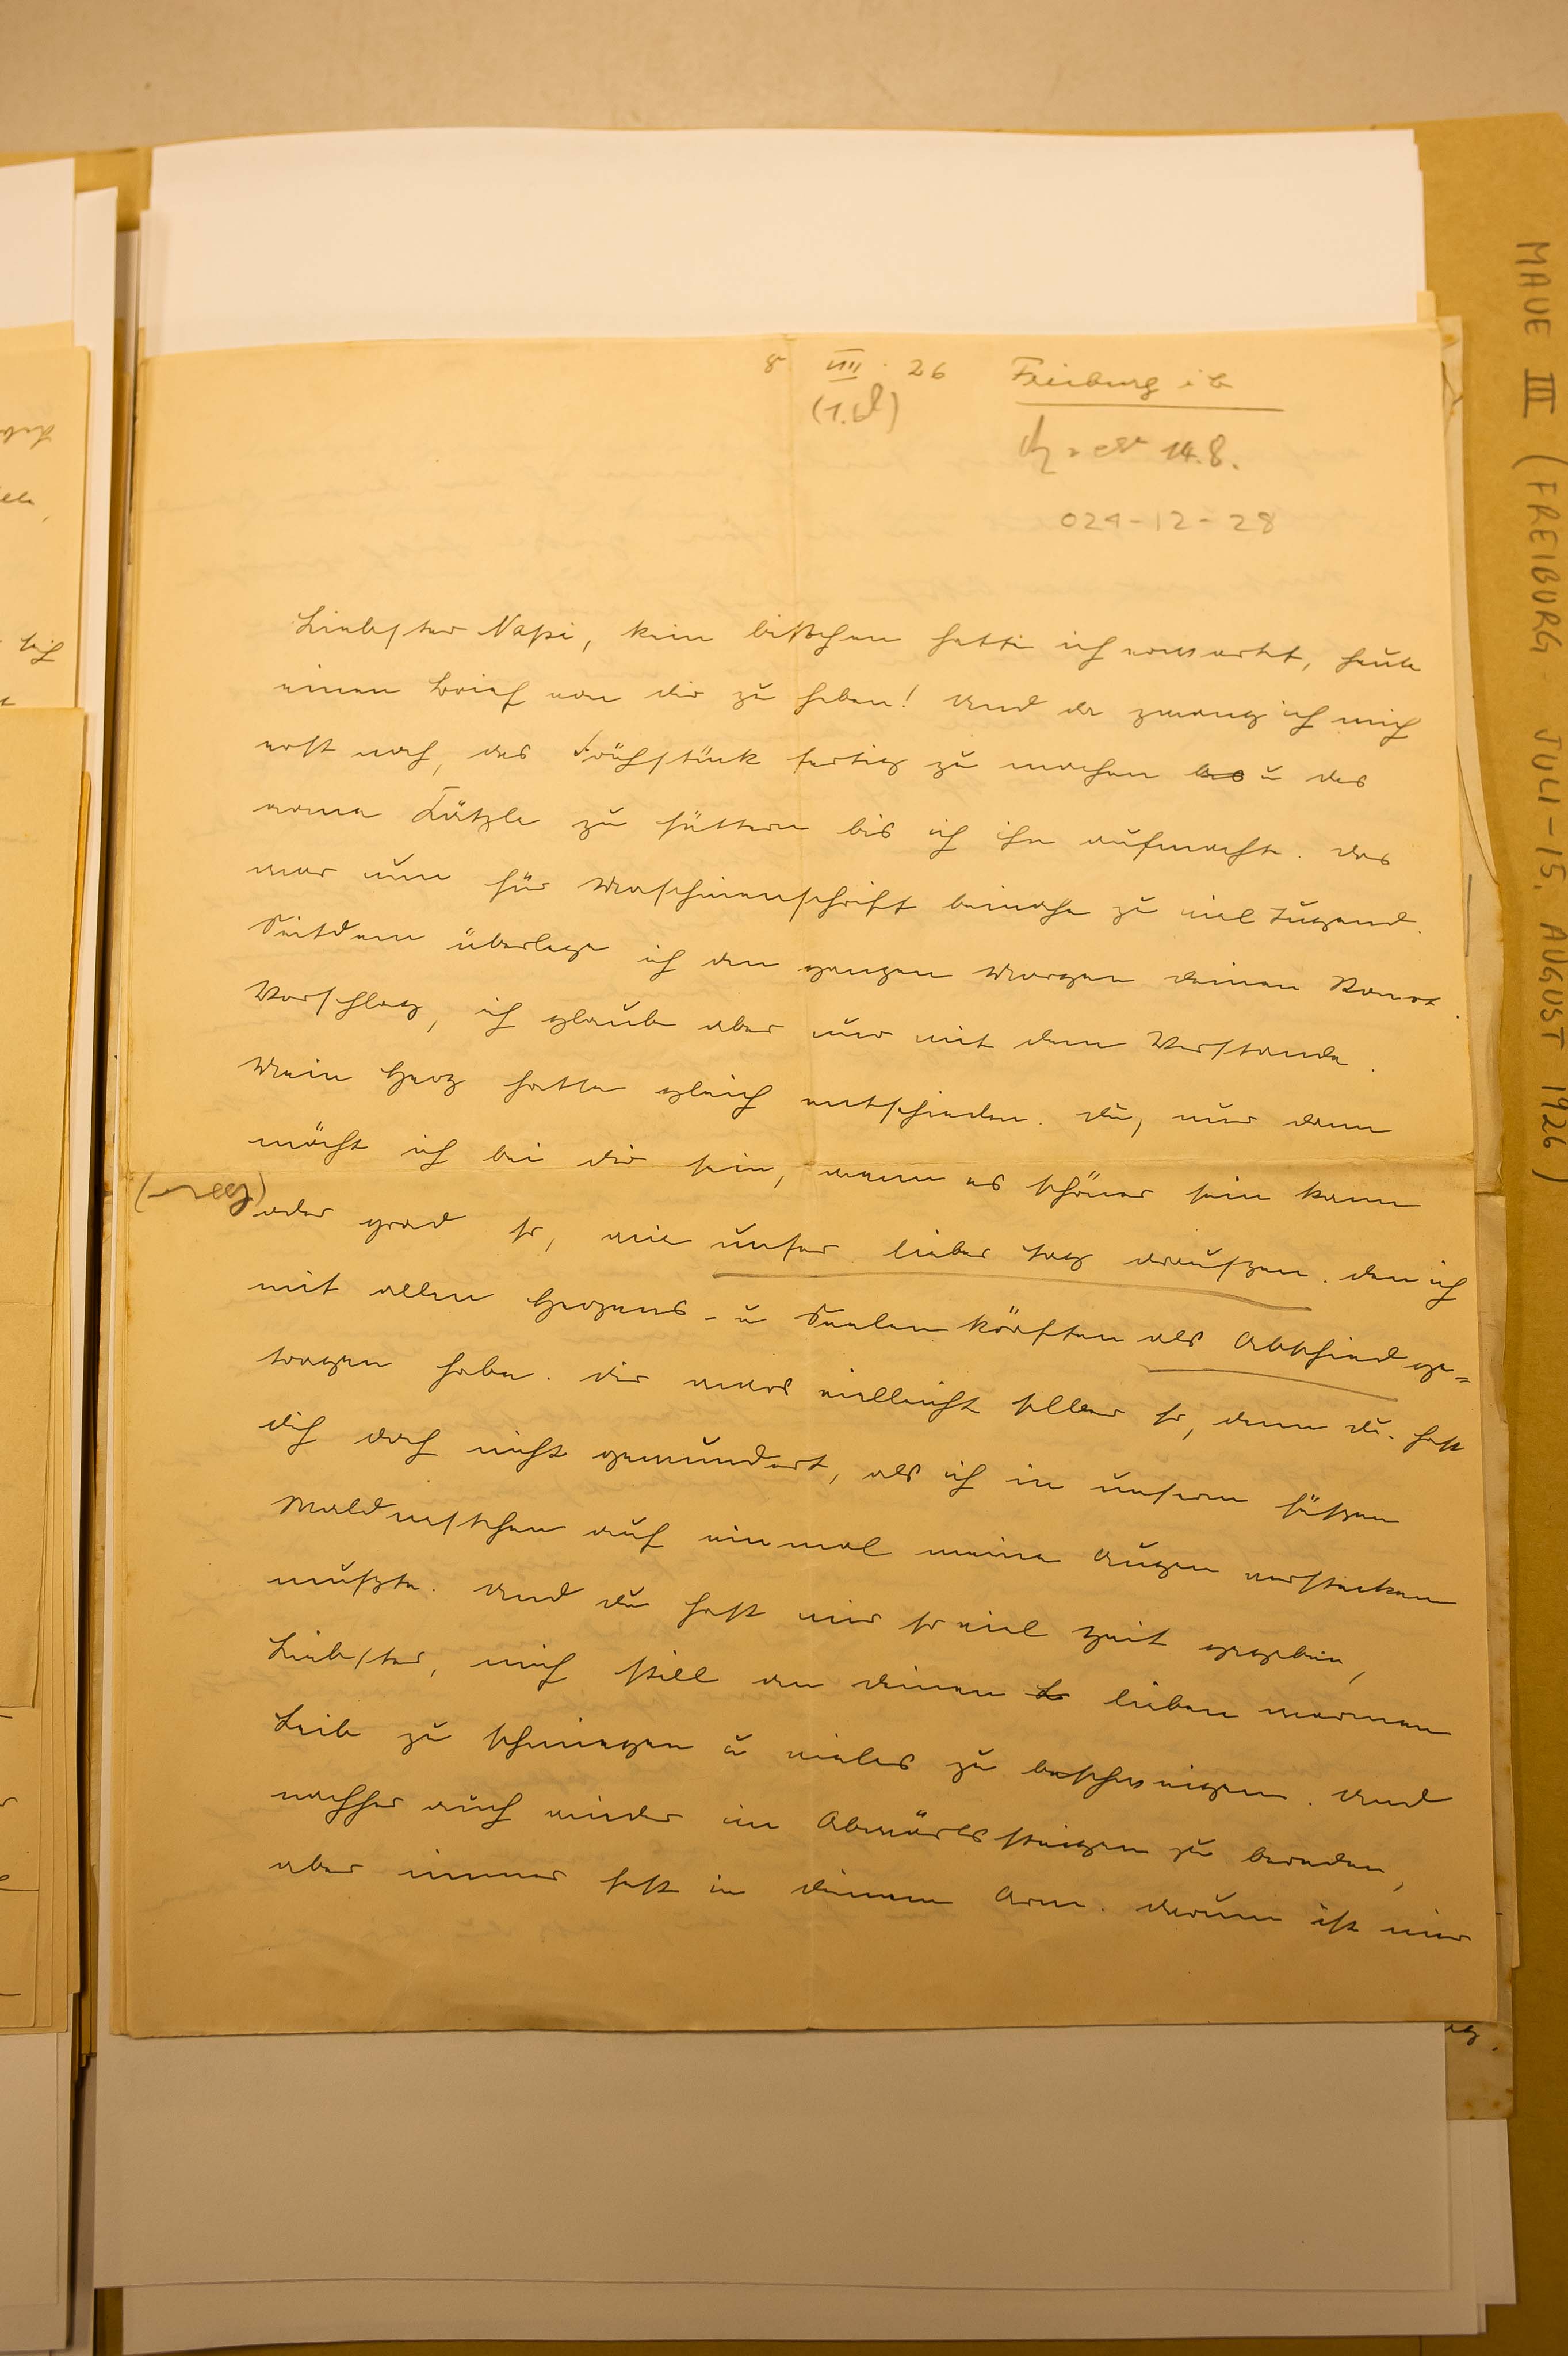 8 VIII. 26 Freiburg i B
14.8.
024-12-28
Liebster Napi, kein bißchen hatte ich erwartet, heute
einen Brief von dir zu haben! Und da zwang ich mich
erst noch, das Frühstück fertig zu machen u das
arme Kätzle zu füttern bis ich ihn aufmachte. Das
war nun für Maschinenschrift beinahe zu viel Tugend.
Seitdem überlege ich den ganzen Morgen deinen
Vorschlag, ich glaube aber nur mit dem Verstande.
Mein Herz hatte gleich entschieden. Du, nur dann
möcht ich bei dir sein, wenn es schöner sein kann
oder grad so, wie unser lieber Tag draußen. den ich
mit allen Herzens- u Seelenkräften als Abschied ge=
tragen habe. Dir wars vielleicht selber so, denn du hast
dich doch nicht gewundert, als ich in unserm süßen
Waldnestchen auf einmal meine Augen verstecken
mußte. Und du hast mir so viel Zeit gegeben,
Liebster, mich still an deinen lieben warmen
Leib zu schmiegen u vieles zu beschweigen. Und
nachher auch wieder im Abwärtssteigen zu bereden,
aber immer fest in deinem Arm. Darum ist mir
MAUE III (FREIBURG JULI-15. AUGUST 1926)